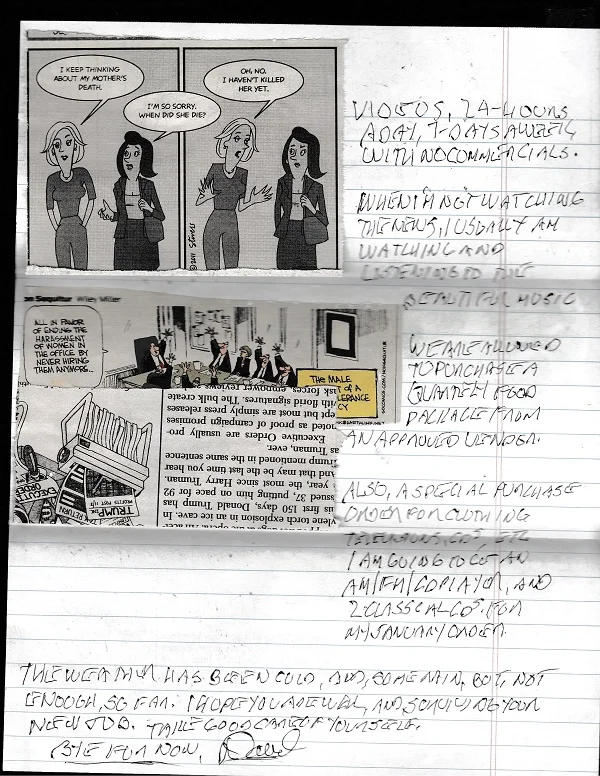 I KEEP THINKING
ABOUT MY MOTHER'S
DEATH.
I'M SO SORRY.
WHEN DID SHE DIE?
OH, NO.
I HAVEN'T KILLED
HER YET.
©2011 Stivers
VIDEOS, 24-HOURS
A DAY, 7-DAYS A WEEK
WITH NO COMMERCIALS.
WHEN I'M NOT WATCHING
THE NEWS, I USUALLY AM
WATCHING AND
LISTENING TO THE
BEAUTIFUL MUSIC
on Sequitur Wiley Miller
ALL IN FAVOR
OF ENDING THE
HARASSMENT
OF WOMEN IN
THE OFFICE BY
NEVER HIRING
THEM ANYMORE...
THE MALE
T OF A
LERANCE
CY
WE ARE ALLOWED
TO PURCHASE A
QUARTERLY FOOD
PACKAGE FROM
AN APPROVED VENDOR.
vient torch explosion in an ice cave. In
his first 150 days, Donald Trump has
issued 37, putting him on pace for 92
a year, the most since Harry Truman.
And that may be the last time you hear
Trump mentioned in the same sentence
as Truman, ever.
Executive Orders are usually pro-
noted as proof of campaign promises
kept but most are simply press releases
with florid signatures. The bulk create
task forces, empower reviews
TRUMP
PROFITS POST 1/11
TAX RETURN
EXECUTIVE ORDERS
ALSO, A SPECIAL PURCHASE
ORDER FOR CLOTHING
TELEVISIONS, CDS, ETC
I AM GOING TO GET AN
AM/FM/CD PLAYER, AND
2 CLASSICAL CDS FOR
MY JANUARY ORDER.
THE WEATHER HAS BEEN COLD, AND, SOME RAIN. BUT, NOT
ENOUGH, SO FAR. I HOPE YOU ARE WELL, AND, YOUR
NEW JOB. TAKE GOOD CARE OF YOURSELF.
BYE FOR NOW,